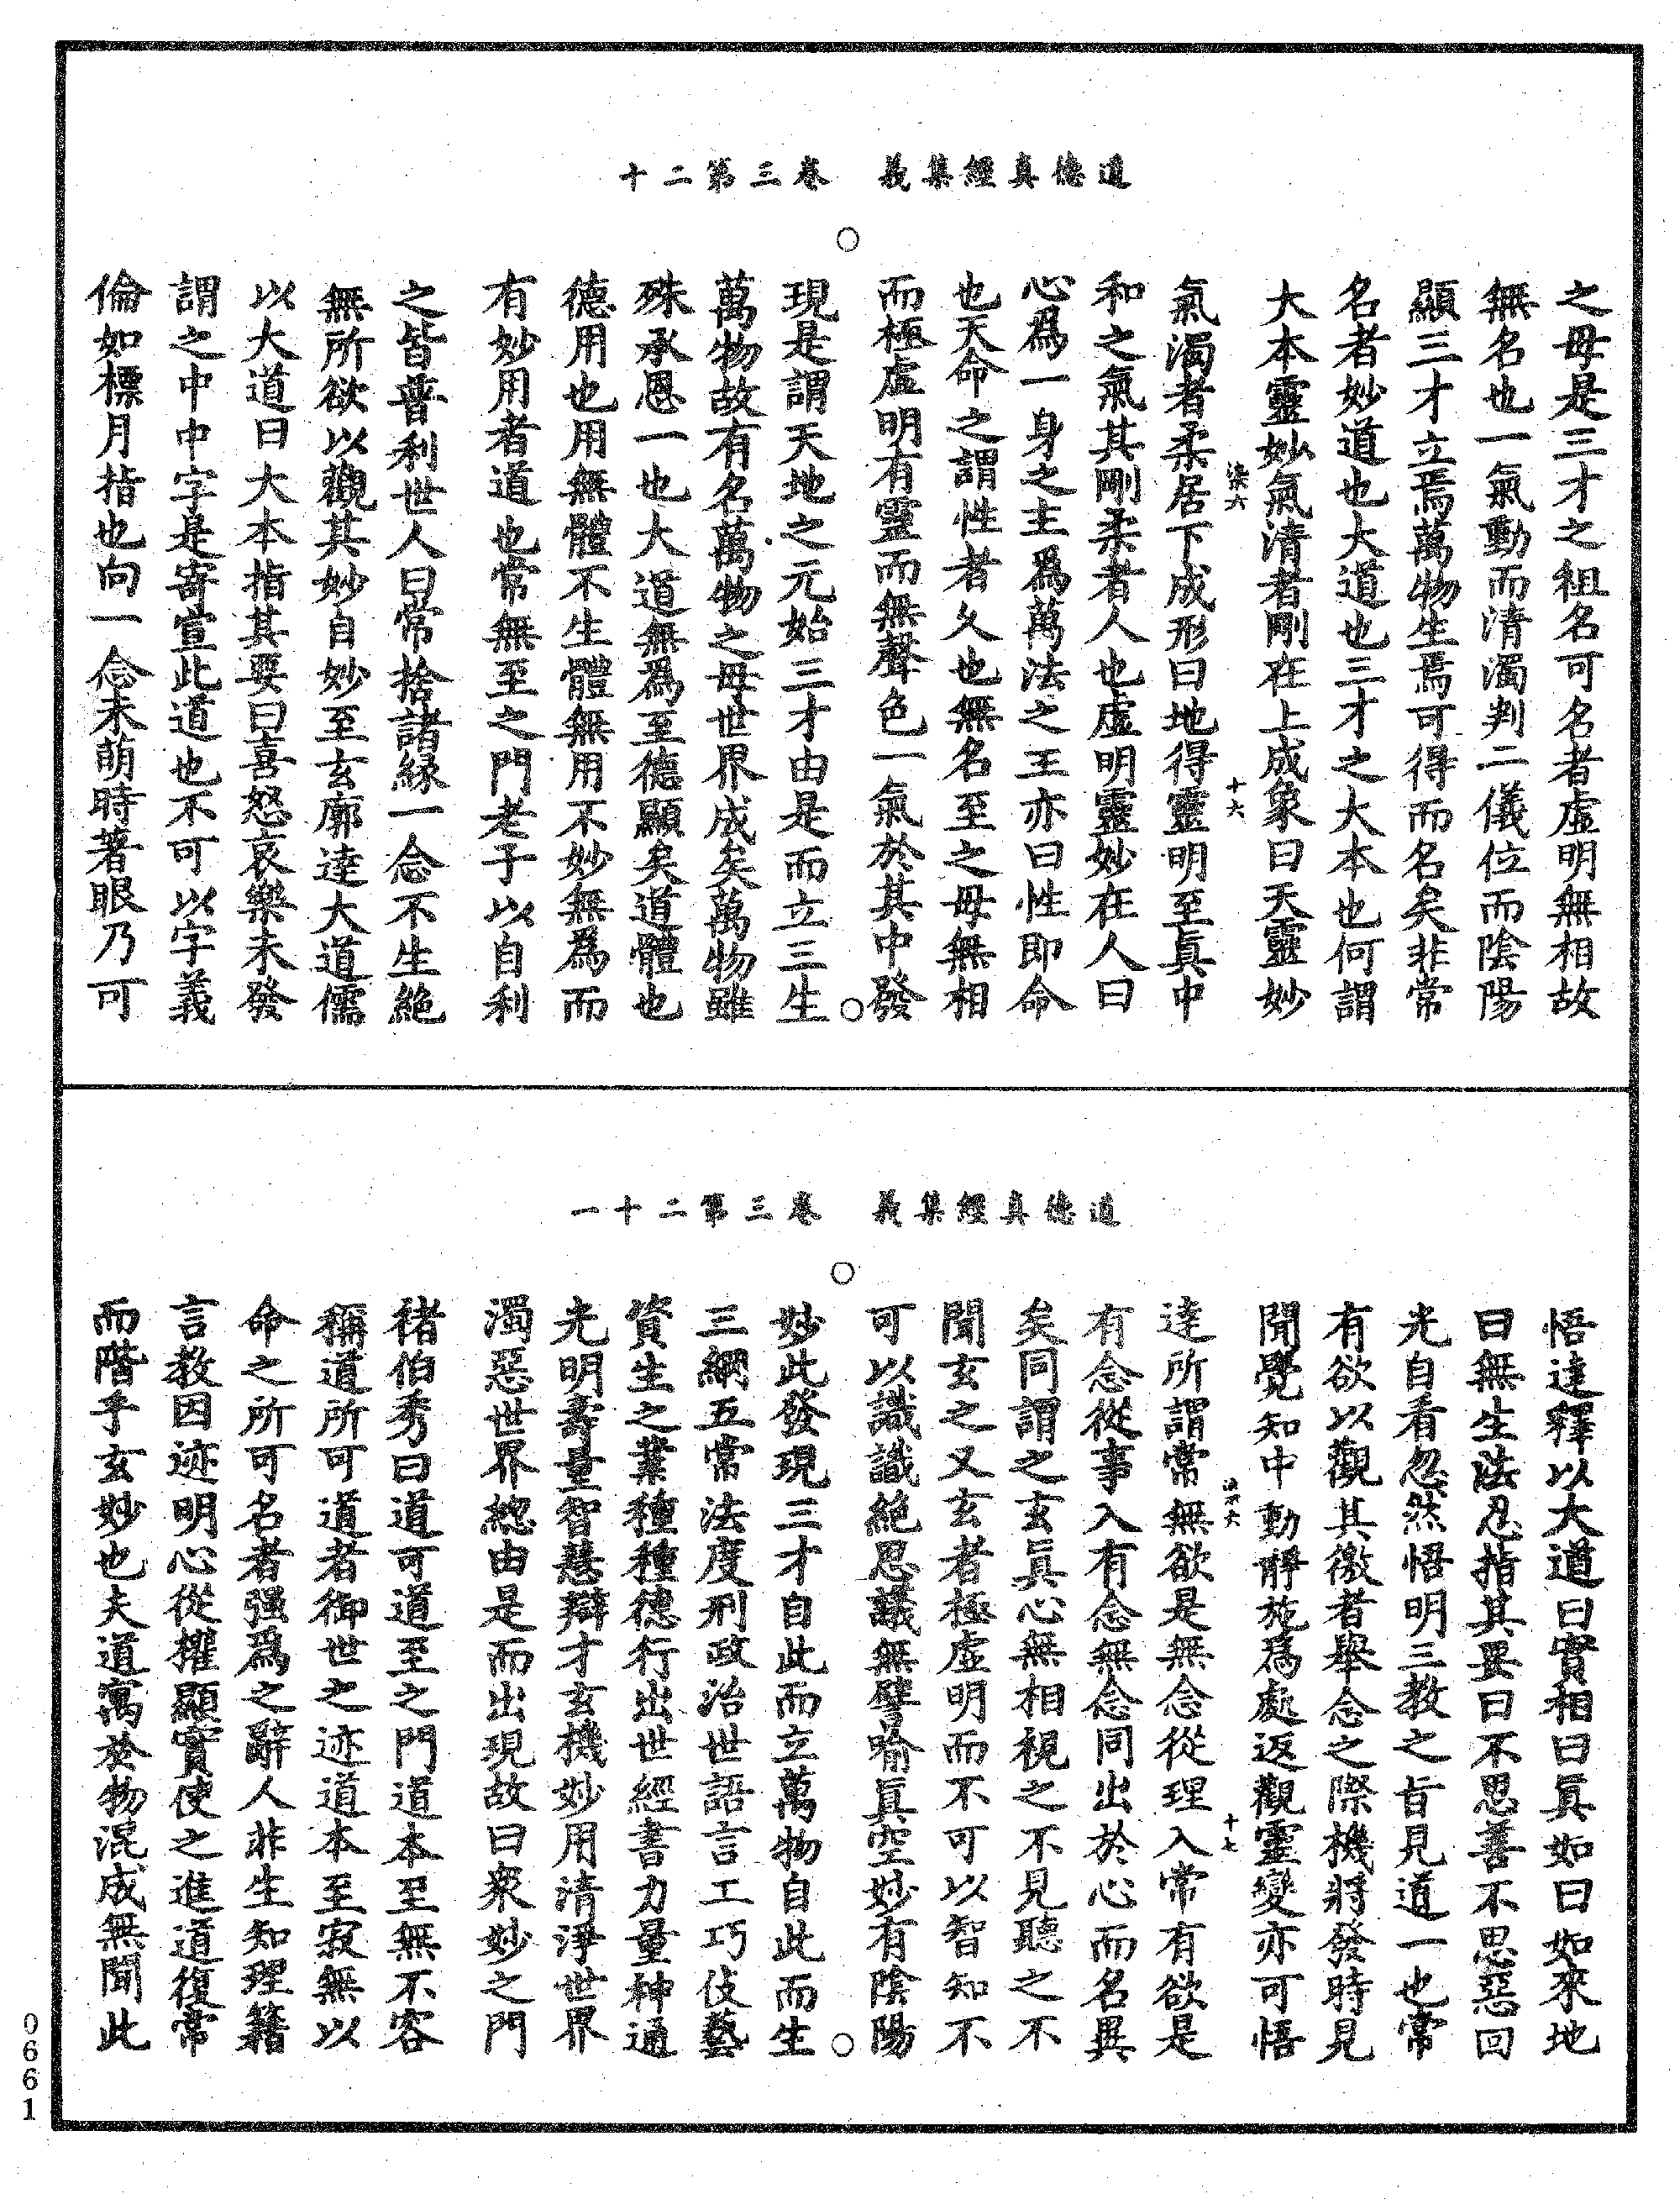 道德真經集義　卷三第二十
之母是三才之祖名可名者虛明無相故
無名也一氣動而清濁判二儀位而陰陽
顯三才立焉萬物生焉可得而名矣非常
名者妙道也大道也三才之大本也何謂
大本靈妙氣清者剛在上成象曰天靈妙
十六
氣濁者柔居下成形曰地得靈明至真中
和之氣其剛柔者人也虛明靈妙在人曰
心為一身之主為萬法之王亦曰性即命
也天命之謂性者久也無名至之母無相
而極虛明有靈而無聲色一氣於其中發
現是謂天地之元始三才由是而立三生
萬物故有名萬物之母世界成矣萬物雖
殊承恩一也大道無為至德顯矣道體也
德用也用無體不生體無用不妙無為而
有妙用者道也常無至之門老子以自利
之皆普利世人曰常捨諸緣一念不生絕
無所欲以觀其妙自妙至玄廓達大道儒
以大道曰大本指其要曰喜怒哀樂未發
謂之中中字是寄宣此道也不可以字義
倫如標月指也向一念未萌時著眼乃可
道德真經集義　卷三第二十一
悟達釋以大道曰實相曰真如曰如來地
曰無生法忍指其異曰不思善不思惡回
光自看忽然悟明三教之旨見道一也常
有欲以觀其徼者舉念之際機將發時見
聞覺知中動靜施為處返觀靈變亦可悟
十七
達所謂常無欲是無念從理入常有欲是
有念從事入有念無念同出於心而名異
矣同謂之玄真心無相視之不見聽之不
聞玄之又玄者極虛明而不可以智知不
可以識識絕思議無譬喻真空妙有陰陽
妙此發現三才自此而立萬物自此而生
三綱五常法度刑政治世語言工巧伎藝
資生之業種種德行出世經書力量神通
光明壽量智慧辯才玄機妙用清淨世界
濁惡世界總由是而出現故曰眾妙之門
褚伯秀曰道可道至之門道本至無不容
稱道所可道者御世之迹道本至寂無以
命之所可名者强為之辭人非生知理籍
言教因迹明心從權顯實使之進道復常
而階乎玄妙也夫道寓於物混成無聞此
0661